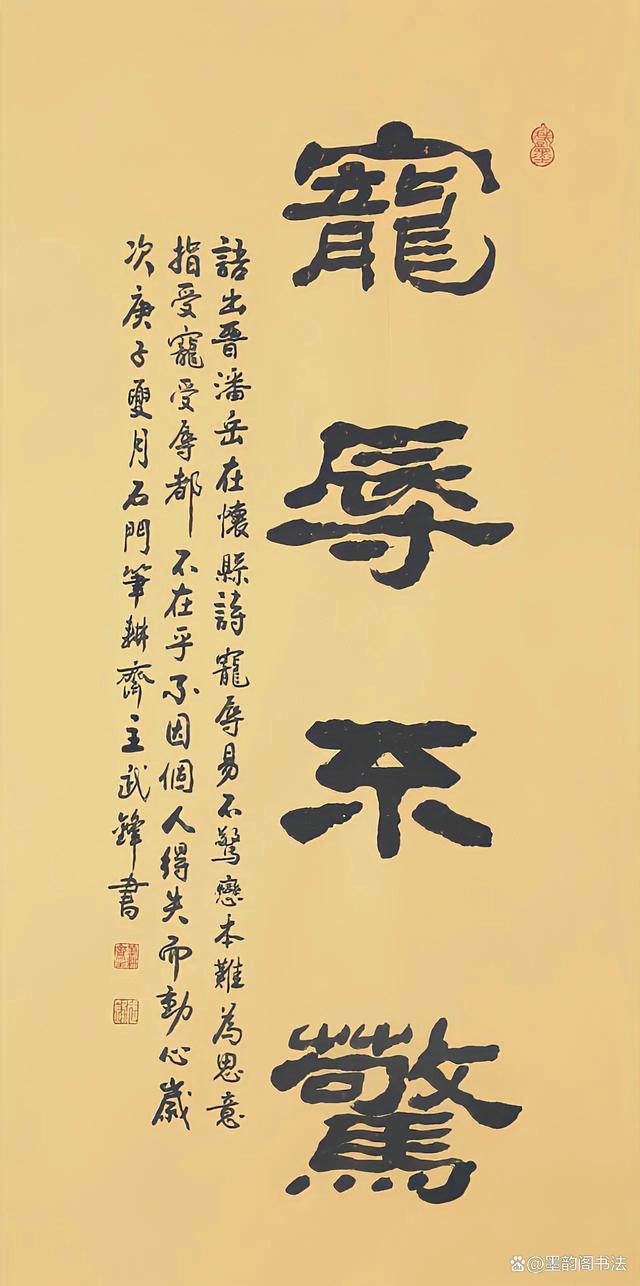 寵辱不驚
語出晉潘岳在懷縣詩寵辱易不驚戀本難為思意
指受寵受辱都不在乎不因個人得失而動心歲
次庚子夏月石門筆耕齋主武鋒書
@墨韵阁书法